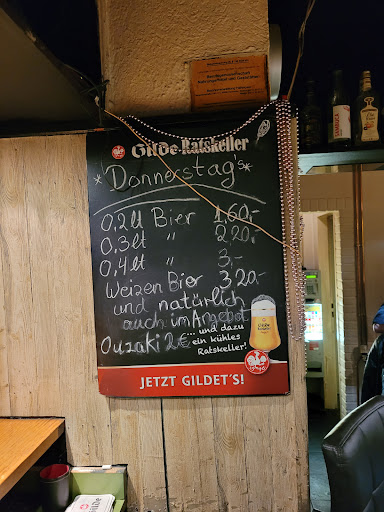 Gilde Ratskeller
Donnerstag's
0,2lt Bier 1,60,-
0,3lt " 2,20,-
0,4lt " 3,-
Weizen Bier 3,20,-
und natürlich
auch im Angebot
Ouzaki 2€
... und dazu
ein kühles
Ratskeller!
JETZT GILDET'S!